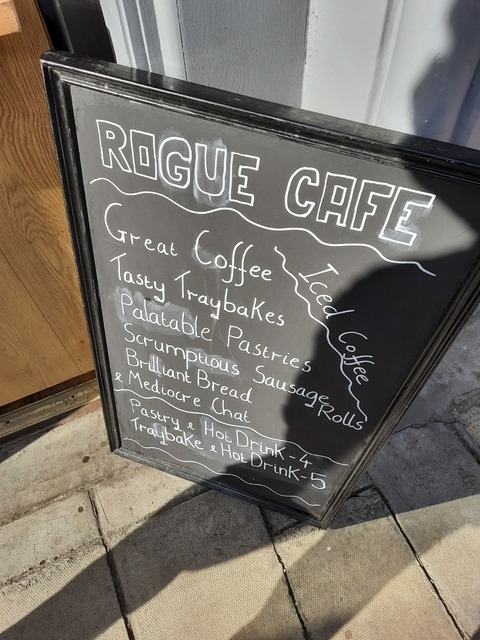 ROGUE CAFE
Great Coffee
Iced Coffee
Tasty Traybakes
Palatable Pastries
Scrumptious Sausage Rolls
Brilliant Bread
& Mediocre Chat
Pastry & Hot Drink - 4
Traybake & Hot Drink - 5